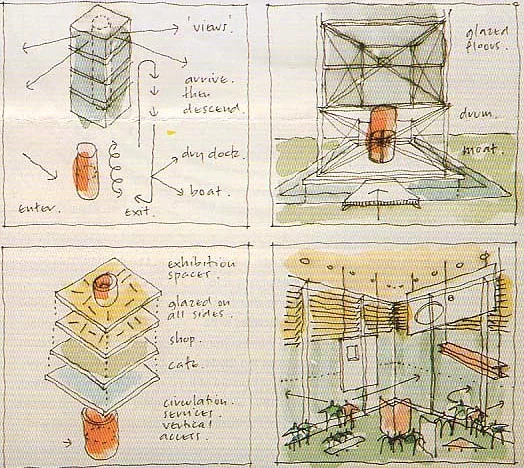 'views'
arrive.
then
descend.
dry dock.
boat.
enter.
exit.
glazed
floors.
drum.
moat.
exhibition
spaces.
glazed on
all sides.
shop.
cafe.
circulation.
services.
vertical
access.